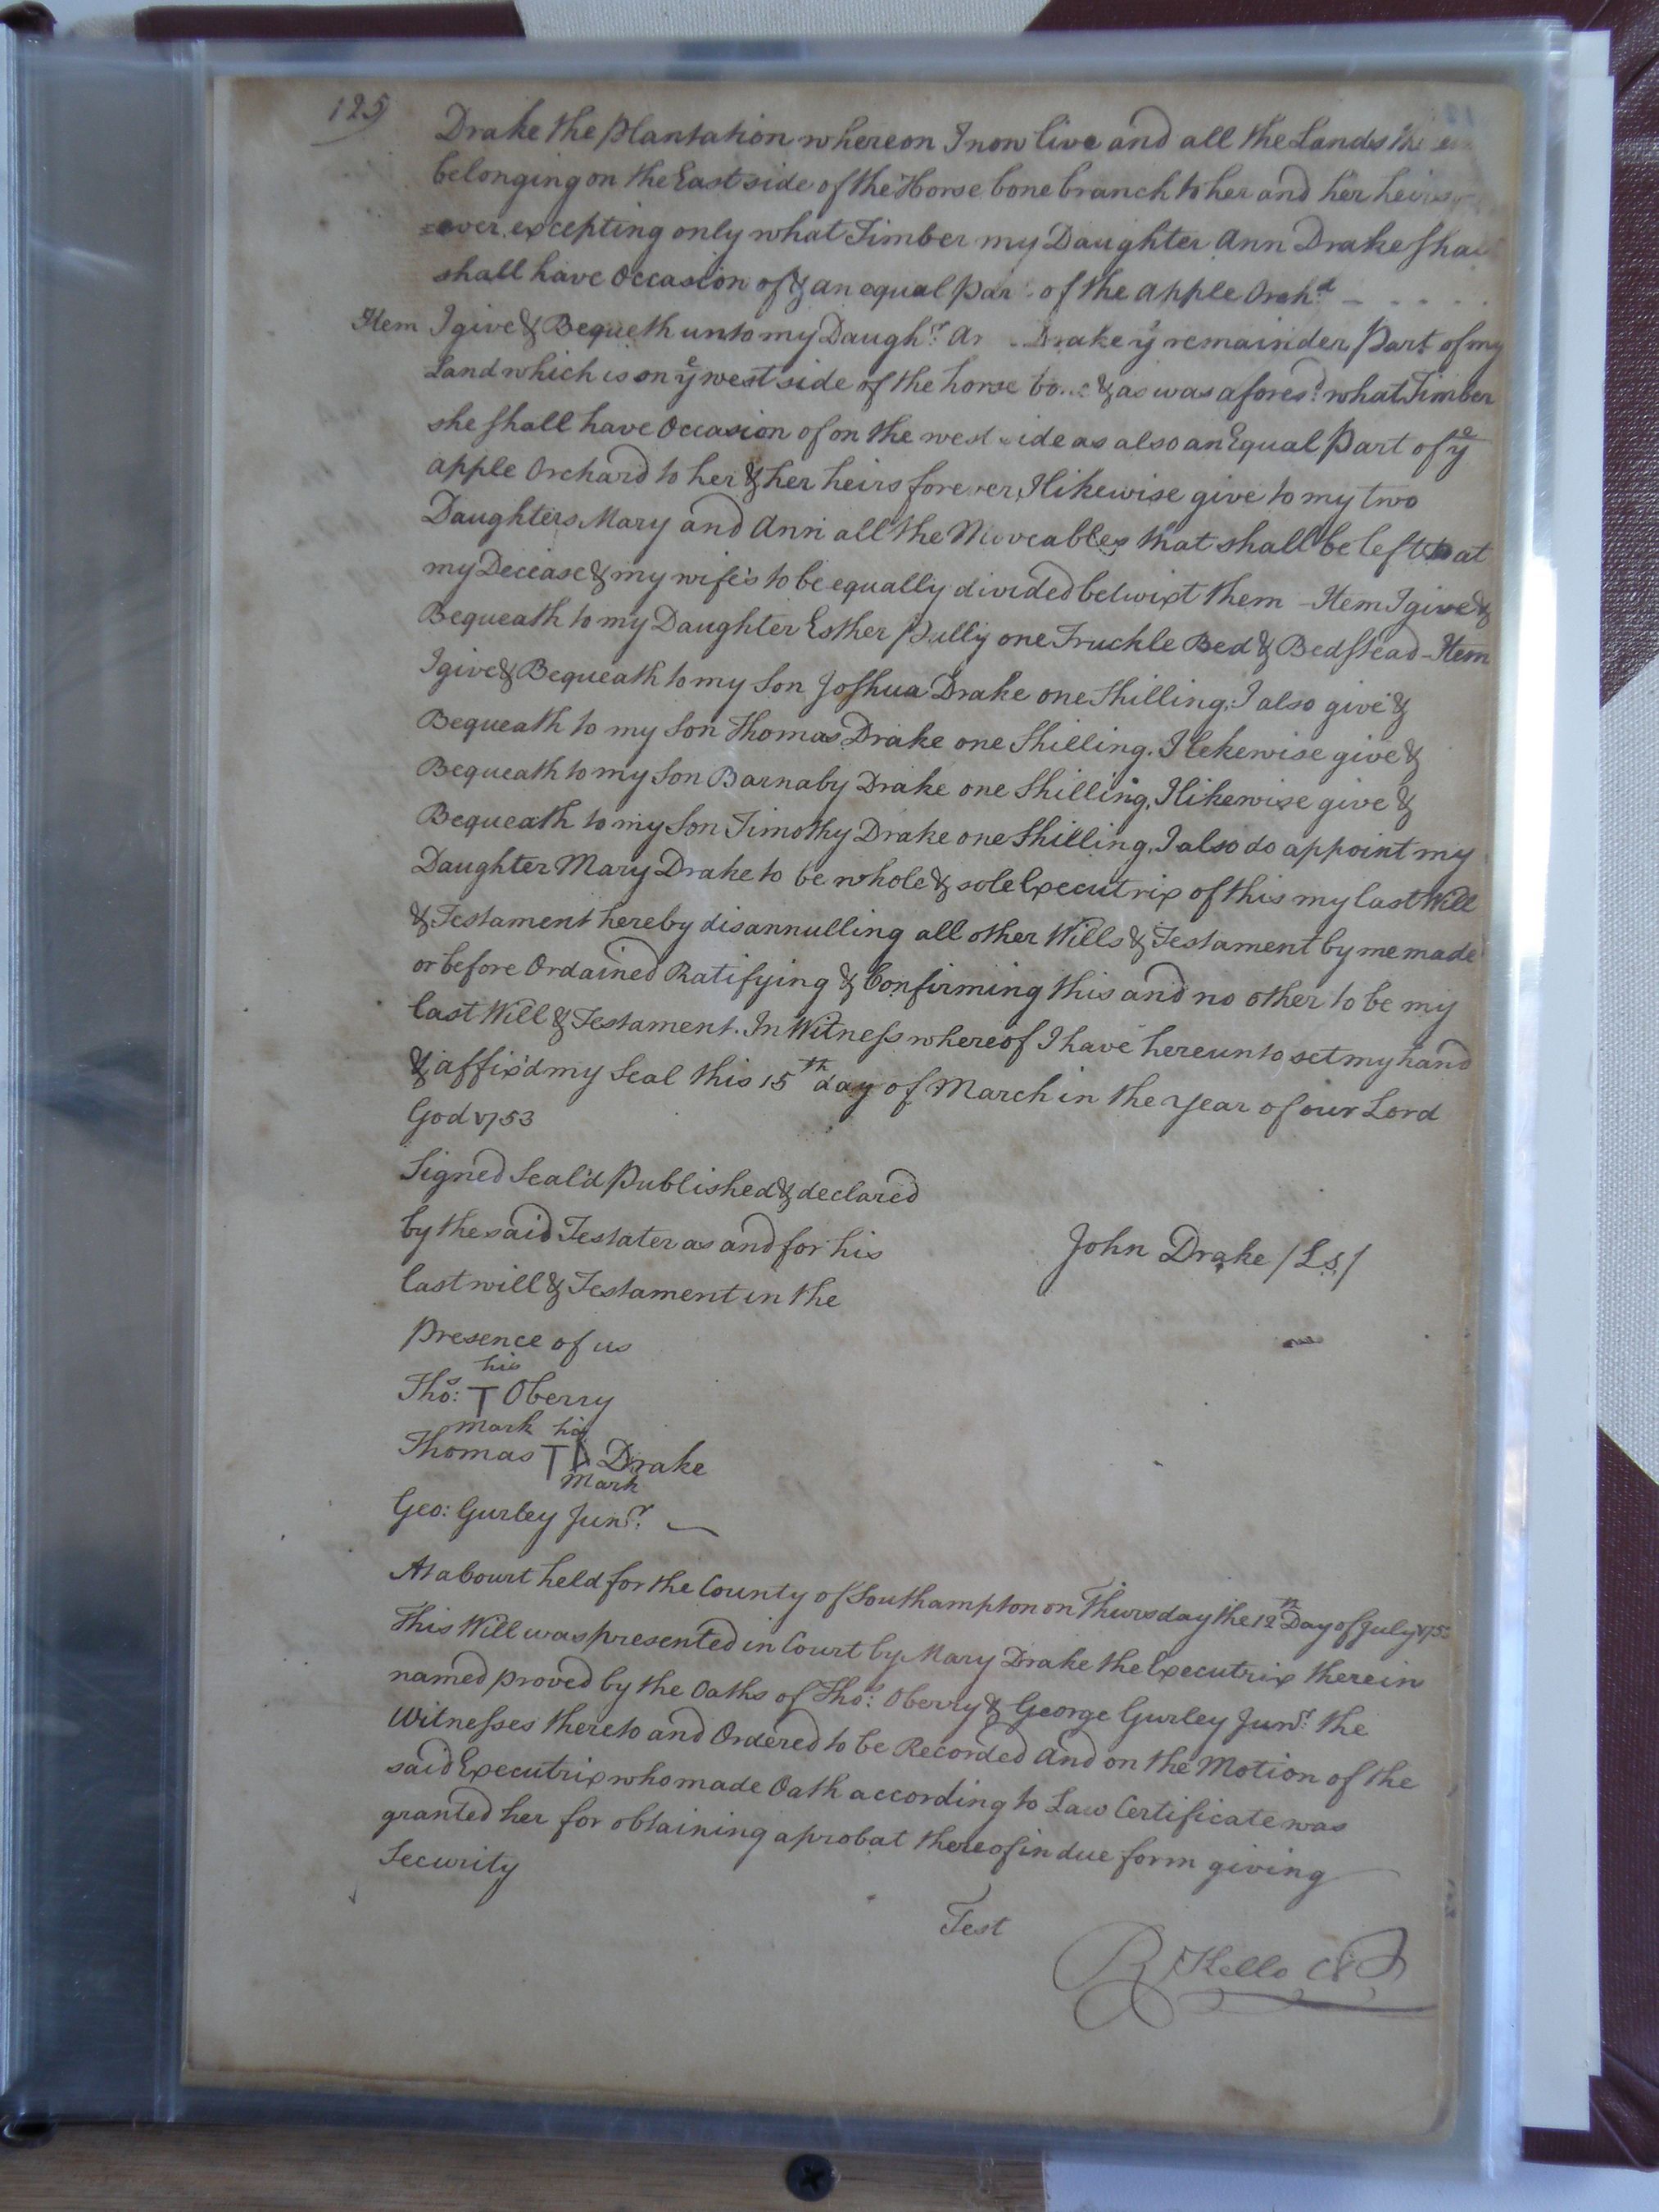 125
Drake the Plantation whereon I now live and all the Lands
belonging on the East side of the Horse bone branch to her and her heirs
=ever excepting only what Timber my Daughter Ann Drake shall
shall have Occasion of & an equal Par of the apple Orch.d
Item I give & Bequeth unto my Daugh.r Drake ye remainder Part of my
Land which is on ye west side of the horse & as was afores.d what Timber
she shall have Occasion of on the west side as also an Equal Part of ye
apple Orchard to her & her heirs forever, I likewise give to my two
Daughters Mary and Ann all the Moveables that shall be left at
my Decease & my wife's to be equally divided betwixt them - Item I give &
Bequeath to my Daughter Esther Pully one Truckle Bed & Bedstead - Item
I give & Bequeath to my Son Joshua Drake one Shilling. I also give &
Bequeath to my Son Thomas Drake one Shilling. I lekewise give &
Bequeath to my Son Barnaby Drake one Shilling, I likewise give &
Bequeath to my Son Timothy Drake one Shilling, I also do appoint my
Daughter Mary Drake to be whole & sole Executrix of this my last Will
& Testament hereby disannulling all other Wills & Testament by me made
or before Ordained Ratifying & Confirming this and no other to be my
last Will & Testament. In Witness whereof I have hereunto set my hand
& affix'd my Seal this 15th day of March in the year of our Lord
God 1753
Signed Seal'd Published & declared
by the said Testater as and for his
John Drake /Ls/
last will & Testament in the
Presence of us
his
Tho.s: T Oberry
mark his
Thomas TD Drake
Mark
Geo: Gurley Jun.r
At a Court held for the County of Southampton on Thursday the 12th Day of July 175
This Will was presented in Court by Mary Drake the Executrix therein
named proved by the Oaths of Tho.s: Oberry & George Gurley Jun.r the
Witnesses thereto and Ordered to be Recorded and on the Motion of the
said Executrix who made Oath according to Law Certificate was
granted her for obtaining a probat thereof in due form giving
Security
Test
R Kello